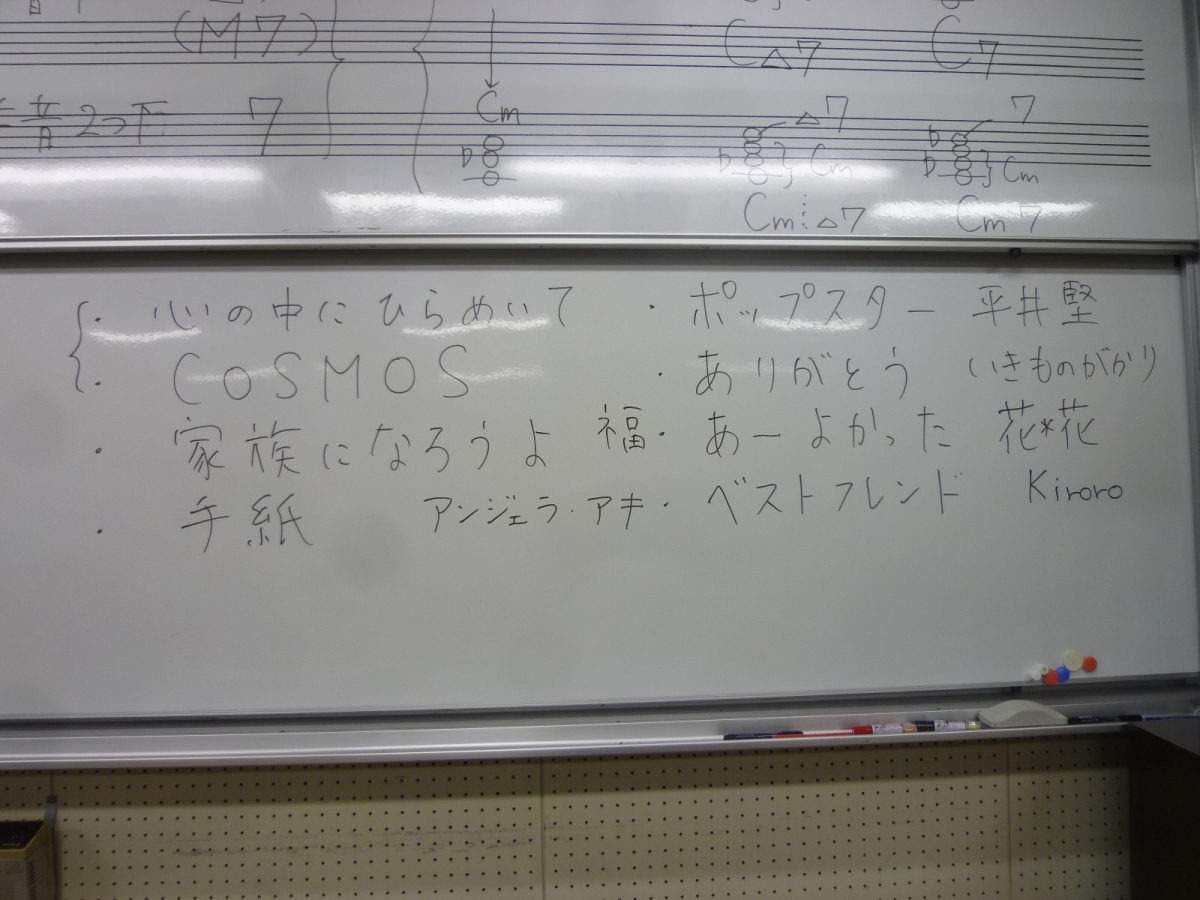 (M7)
C△7
C7
音2つ下
7
Cm
△7
7
♭
♭
♭
♭
Cm
Cm
Cm△7
Cm7
・心の中にひらめいて
・COSMOS
・家族になろうよ 福
・手紙 アンジェラ・アキ
・ポップスター 平井堅
・ありがとう いきものがかり
・あーよかった 花*花
・ベストフレンド Kiroro